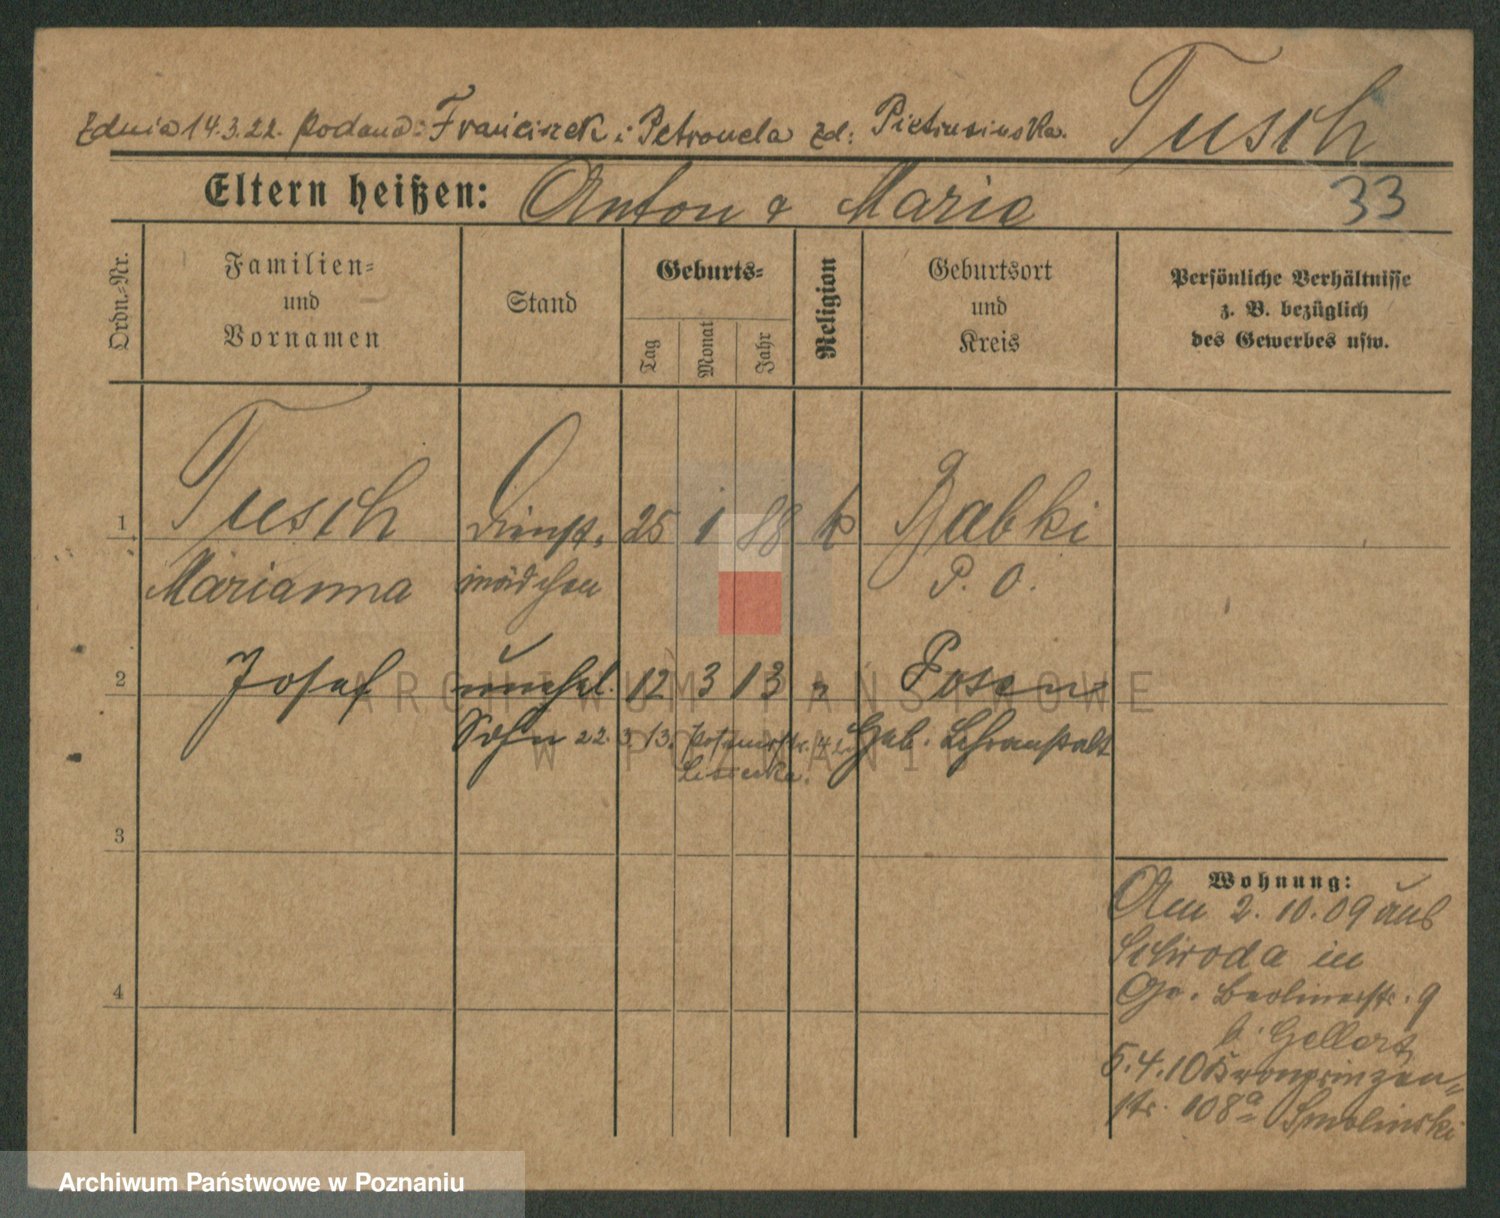 Z dnia 14.3.22. podano: Franciszek i Petronela zd: Pietrusinska.
Tusch
Eltern heißen: Anton & Marie
33
Ordn.-Nr.
Familien-
und
Vornamen
Stand
Geburts-
Tag
Monat
Jahr
Religion
Geburtsort
und
Kreis
Persönliche Verhältnisse
z. B. bezüglich
des Gewerbes usw.
1 Tusch Dienst- 25 1 88 k Babki
Marianna mädchen P. O.
2 Josef unehel. 12 3 13 " Posen
Sohn 22. 3. 13. Geb. Lehranstalt
3
4
Wohnung:
Am 2. 10. 09 aus
Schroda in
Gr. Berlinerstr. 9
b. Gellert
5.4.10 Kronprinzen-
str. 108a Smolinski
ARCHIWUM PAŃSTWOWE
W POZNANIU
Archiwum Państwowe w Poznaniu